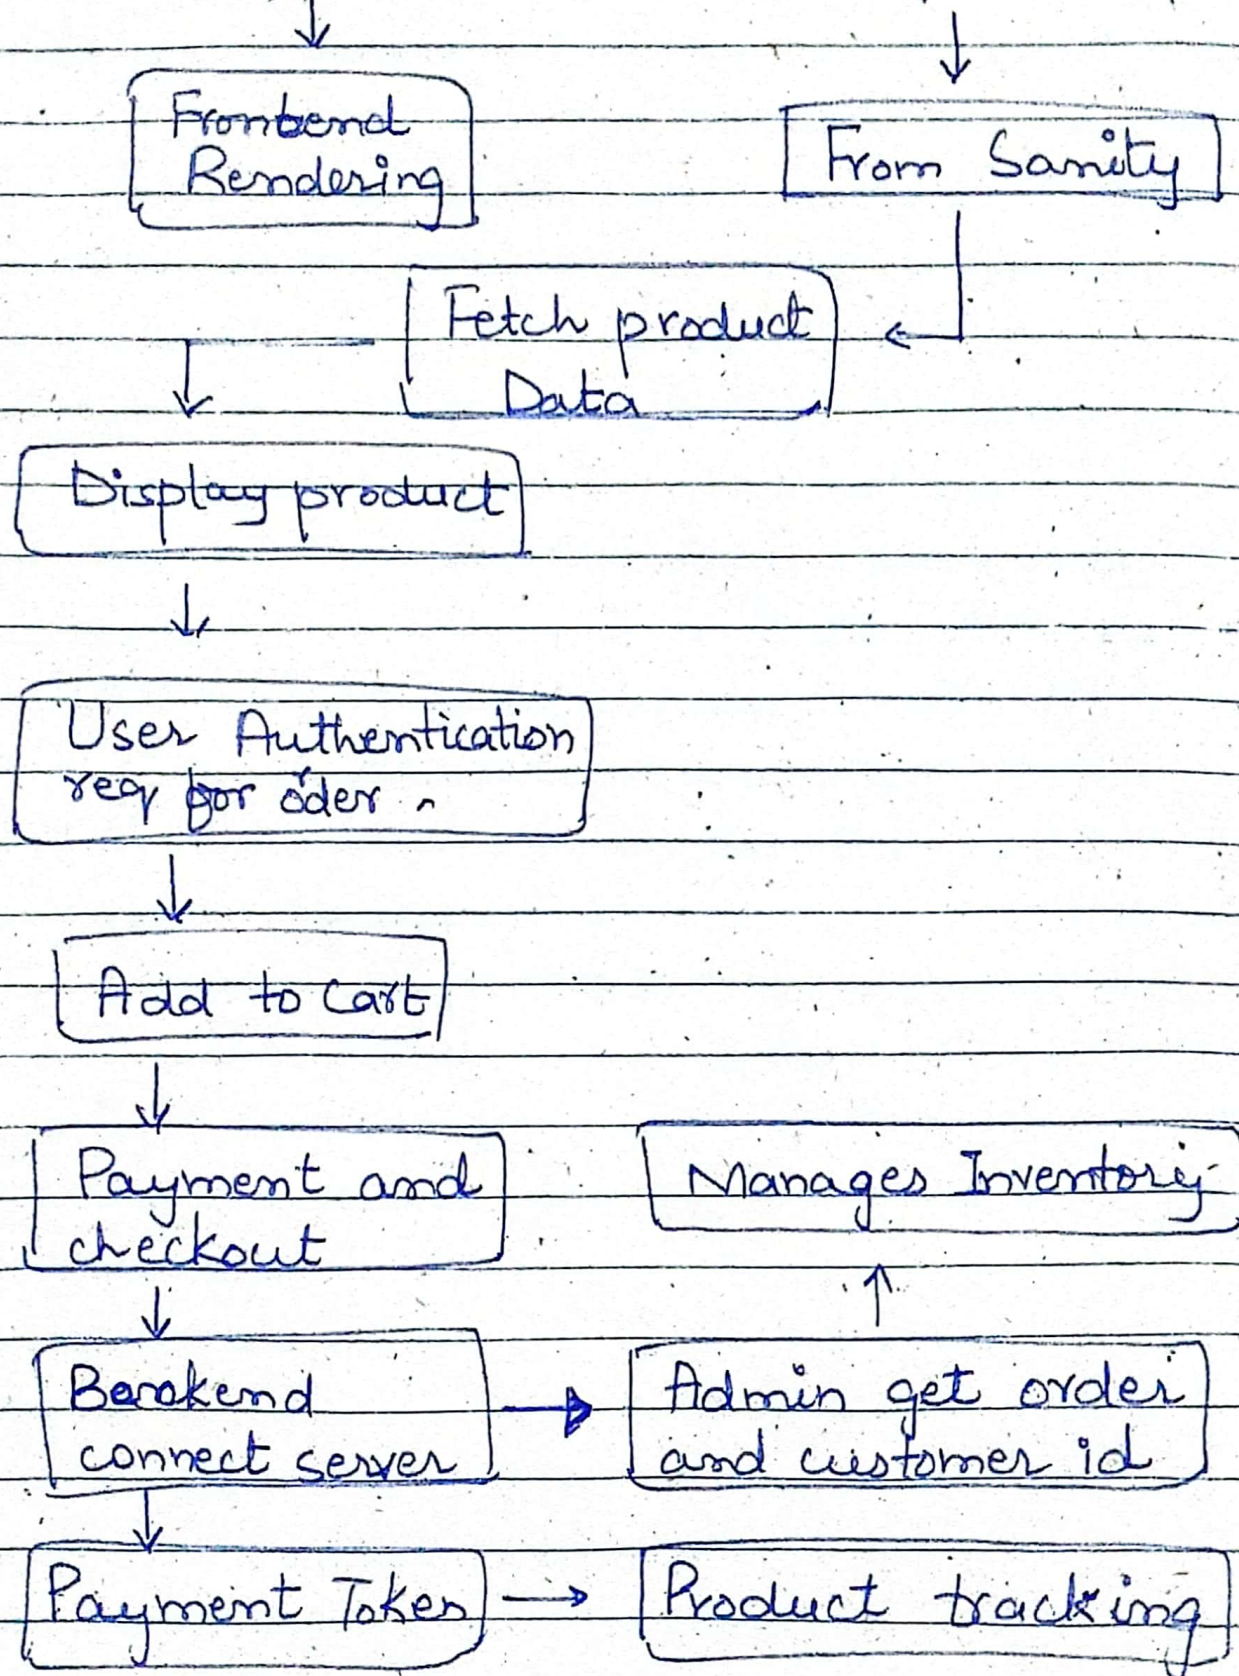 Frontend
Rendering
From Sanity
Fetch product
Data
Display product
User Authentication
req for oder
Add to Cart
Payment and
checkout
Manages Inventory
Backend
connect server
Admin get order
and customer id
Payment Token
Product tracking